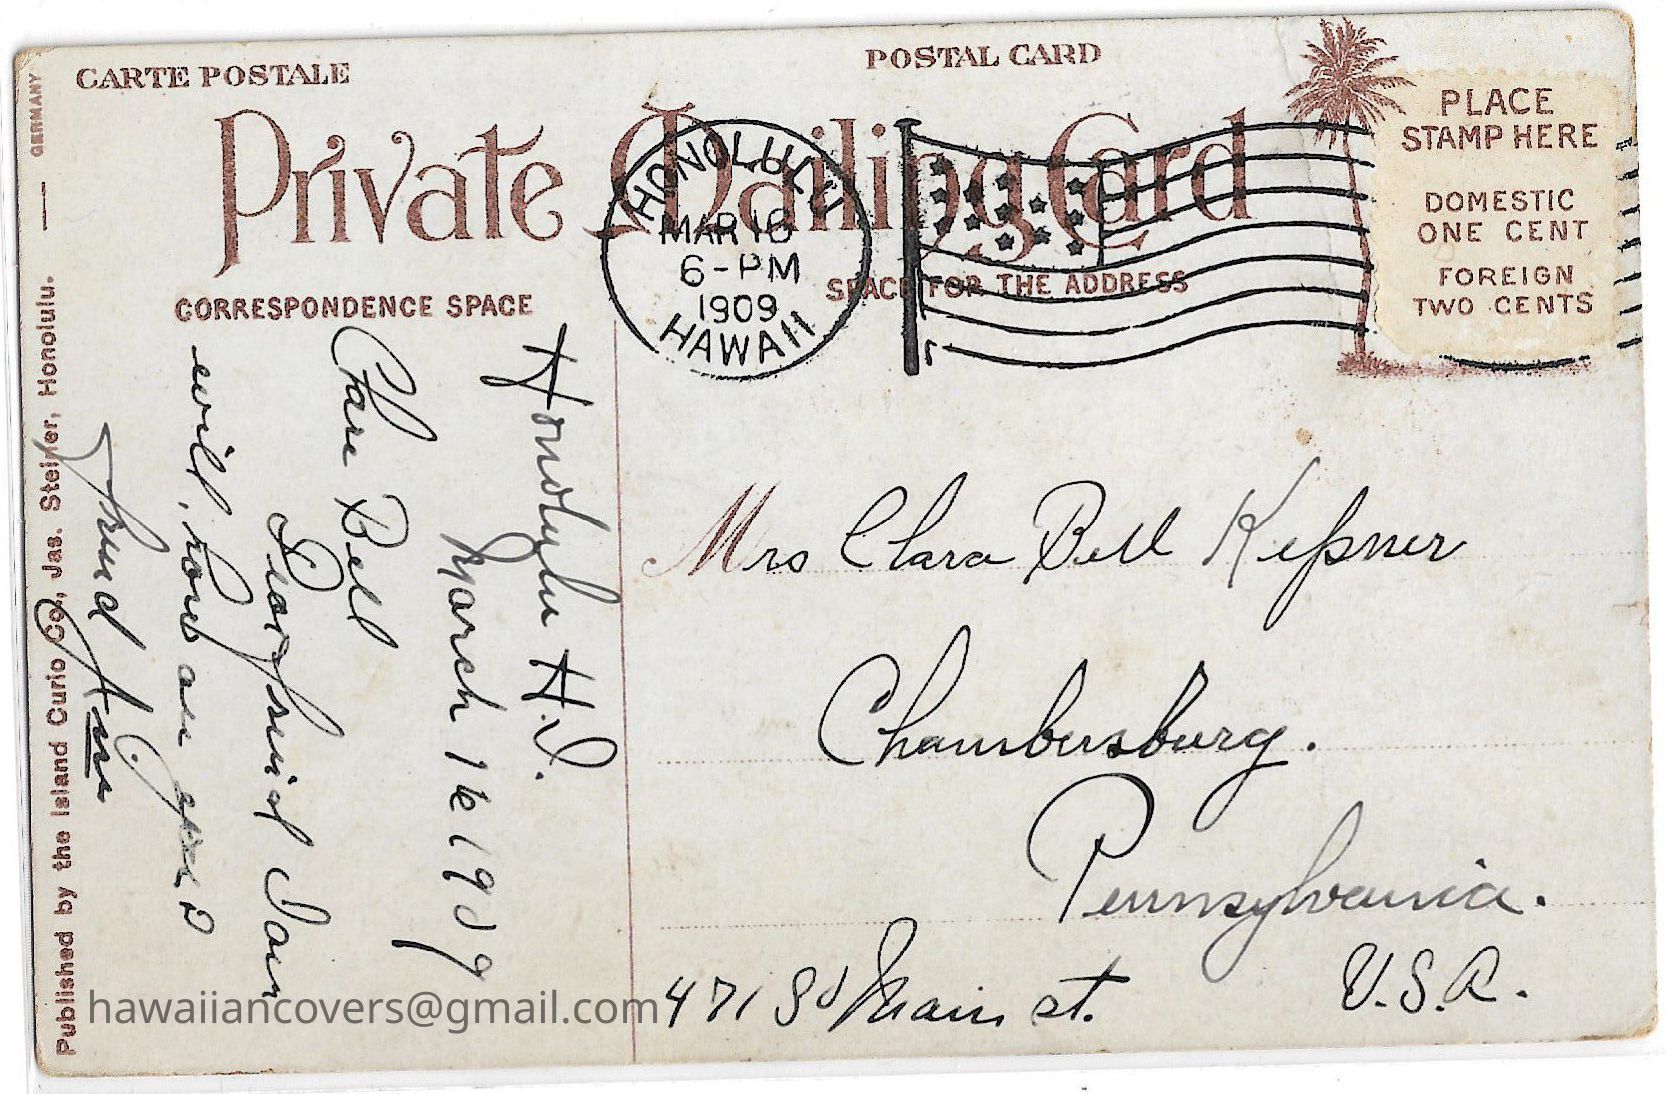 CARTE POSTALE
POSTAL CARD
Private Mailing Card
CORRESPONDENCE SPACE
SPACE FOR THE ADDRESS
PLACE
STAMP HERE
DOMESTIC
ONE CENT
FOREIGN
TWO CENTS
HONOLULU
MAR 16
6-PM
1909
HAWAII
Honolulu H.I.
March 16 1909
Clara Bell
Dear friend I am
will, how are you?
friend
Mrs Clara Bell Keßner
Chambersburg.
Pennsylvania.
471 So Main st.
U.S.A.
Published by the Island Curio Co., Jas. Steiner, Honolulu.
GERMANY
hawaiiancovers@gmail.com